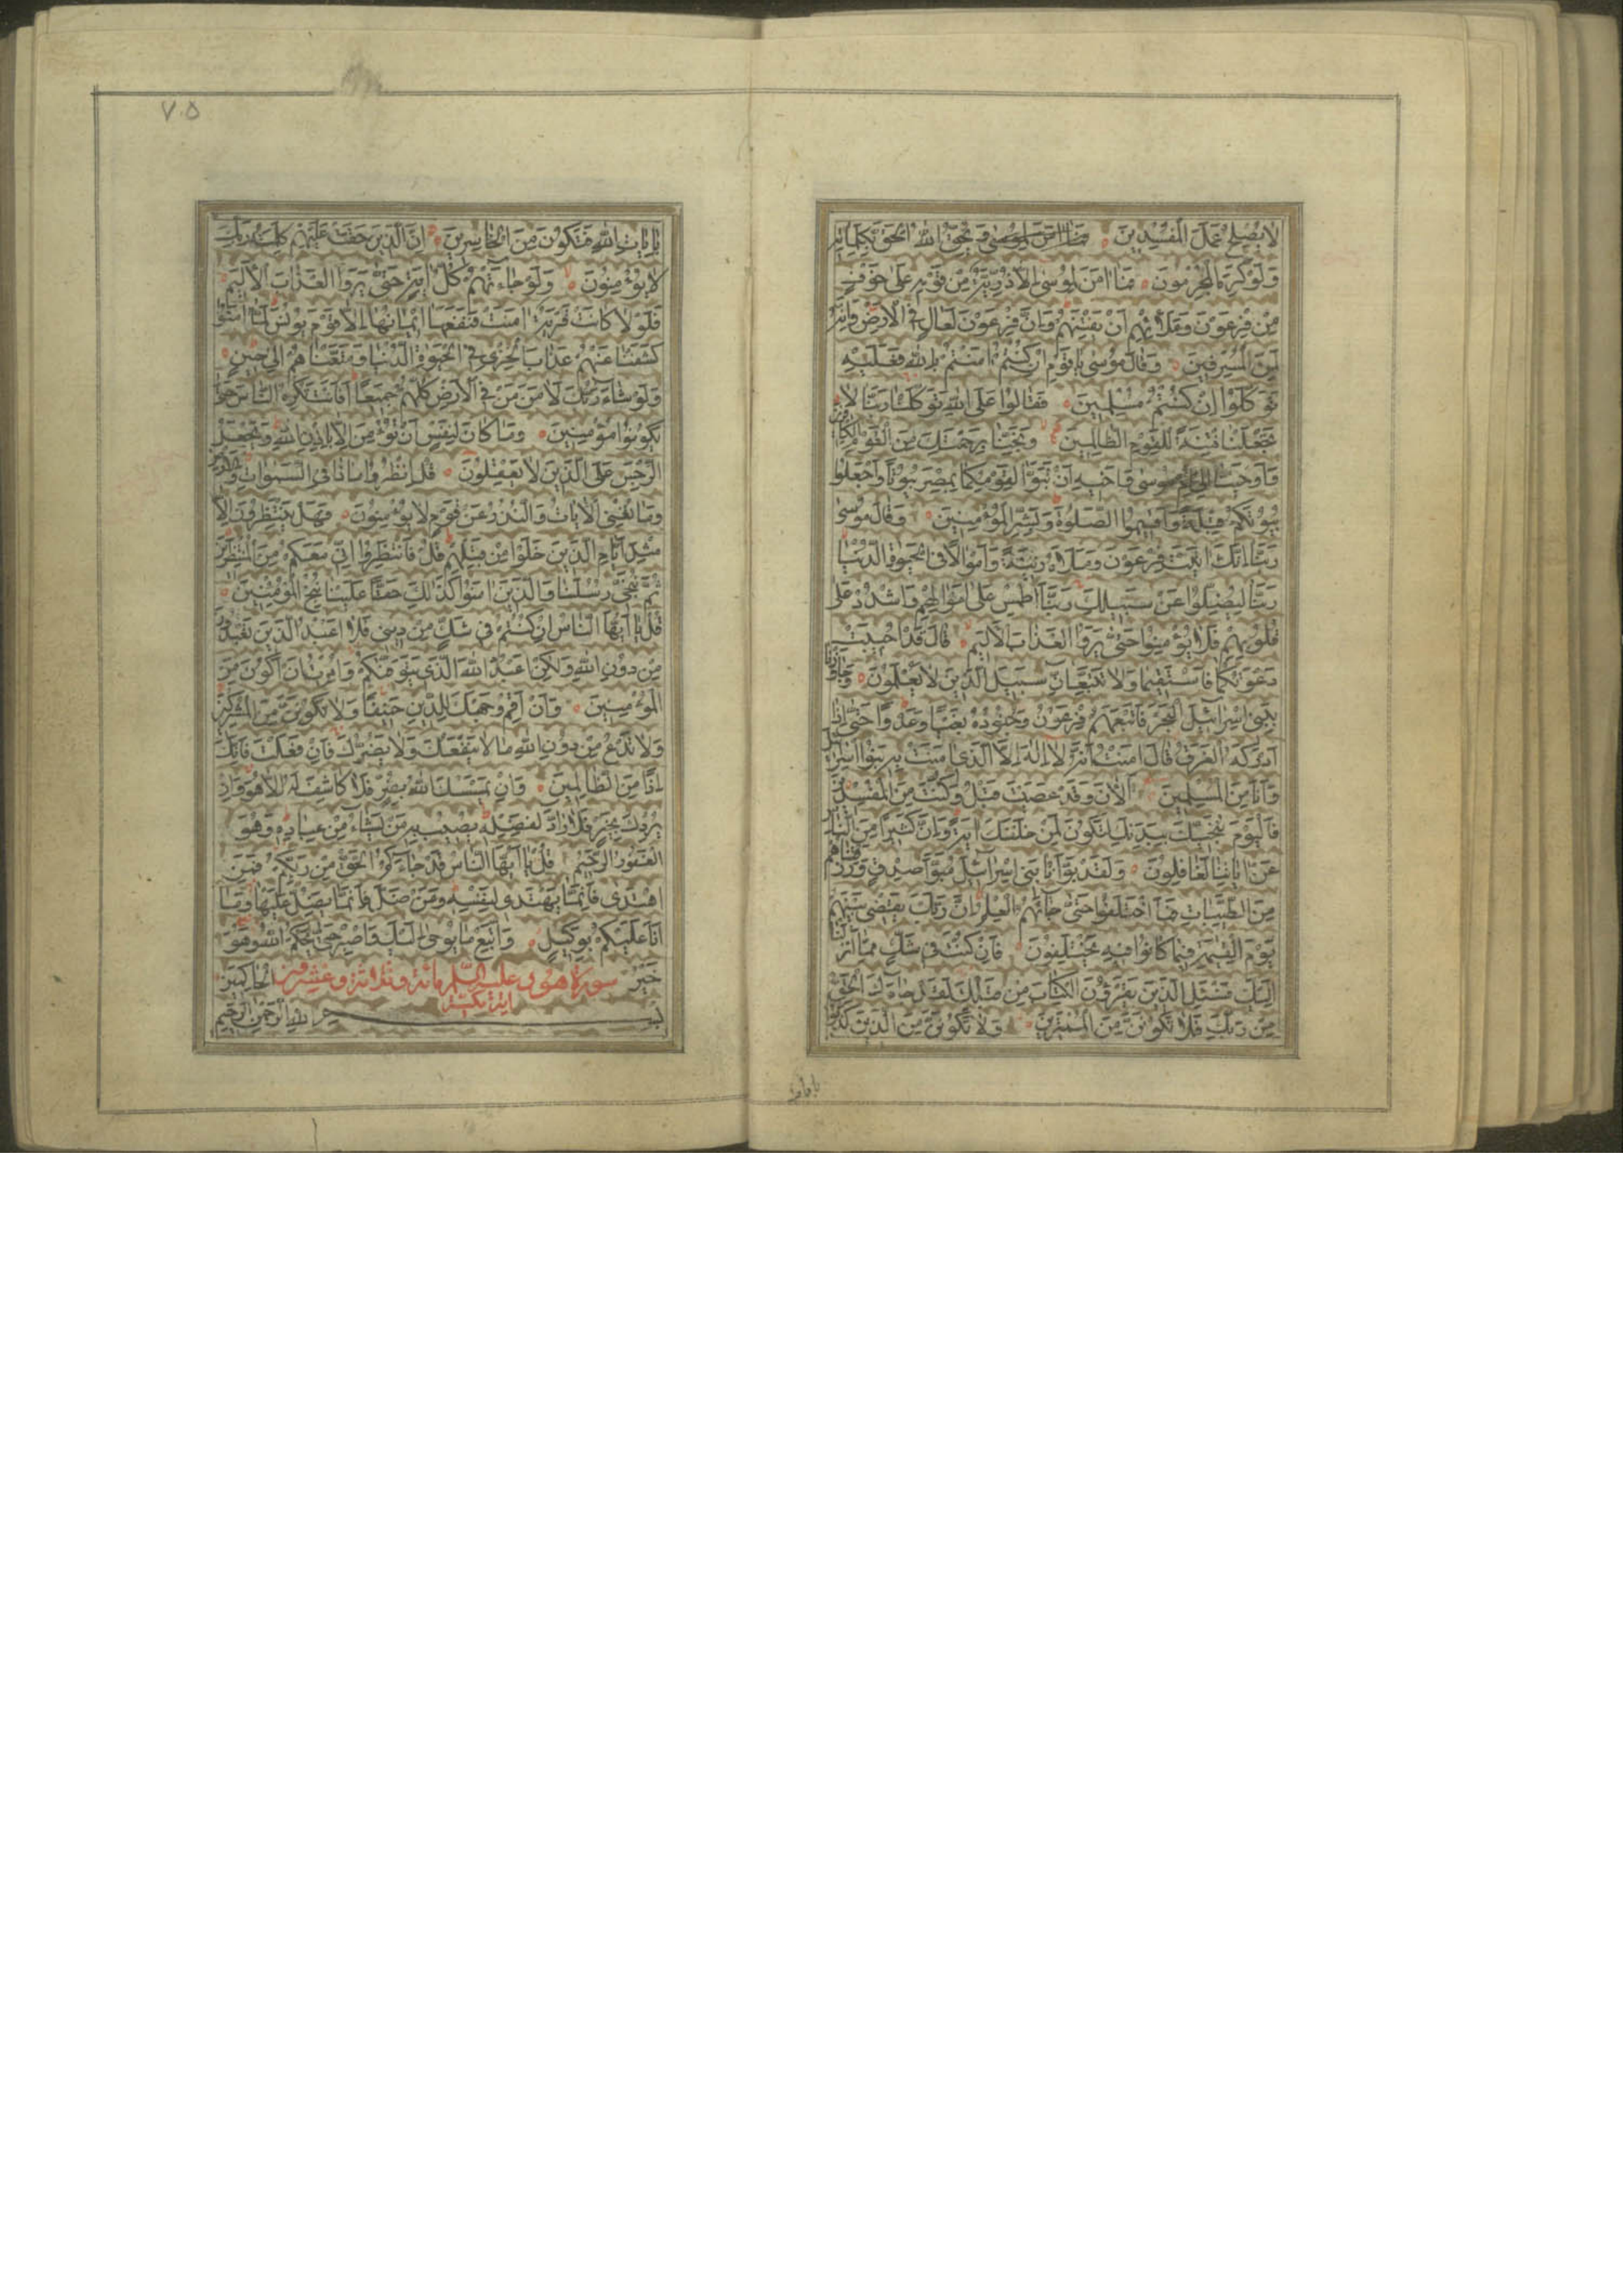 لا يُصْلِحُ عَمَلَ الْمُفْسِدِينَ وَيُحِقُّ اللهُ الْحَقَّ بِكَلِمَاتِهِ
وَلَوْ كَرِهَ الْمُجْرِمُونَ فَمَا امَنَ لِمُوسىٰ اِلَّا ذُرِّيَّةٌ مِنْ قَوْمِهِ عَلىٰ خَوْفٍ
مِنْ فِرْعَوْنَ وَمَلَائِهِمْ اَنْ يَفْتِنَهُمْ وَاِنَّ فِرْعَوْنَ لَعَالٍ فِي الْاَرْضِ وَاِنَّهُ
لَمِنَ الْمُسْرِفِينَ وَقَالَ مُوسىٰ يَا قَوْمِ اِنْ كُنْتُمْ امَنْتُمْ بِاللهِ فَعَلَيْهِ
تَوَكَّلُوْا اِنْ كُنْتُمْ مُسْلِمِينَ فَقَالُوا عَلَى اللهِ تَوَكَّلْنَا رَبَّنَا لَا
تَجْعَلْنَا فِتْنَةً لِلْقَوْمِ الظَّالِمِينَ وَنَجِّنَا بِرَحْمَتِكَ مِنَ الْقَوْمِ الْكَافِرِينَ
وَاَوْحَيْنَا اِلىٰ مُوسىٰ وَاَخِيهِ اَنْ تَبَوَّا لِقَوْمِكُمَا بِمِصْرَ بُيُوتًا وَاجْعَلُوا
بُيُوتَكُمْ قِبْلَةً وَاَقِيمُوا الصَّلٰوةَ وَبَشِّرِ الْمُؤْمِنِينَ وَقَالَ مُوسىٰ
رَبَّنَا اِنَّكَ اتَيْتَ فِرْعَوْنَ وَمَلَاَهُ زِينَةً وَاَمْوَالًا فِي الْحَيٰوةِ الدُّنْيَا
رَبَّنَا لِيُضِلُّوا عَنْ سَبِيلِكَ رَبَّنَا اطْمِسْ عَلىٰ اَمْوَالِهِمْ وَاشْدُدْ عَلىٰ
قُلُوبِهِمْ فَلَا يُؤْمِنُوا حَتّىٰ يَرَوُا الْعَذَابَ الْاَلِيمَ قَالَ قَدْ اُجِيبَتْ
دَعْوَتُكُمَا فَاسْتَقِيمَا وَلَا تَتَّبِعَانِّ سَبِيلَ الَّذِينَ لَا يَعْلَمُونَ وَجَاوَزْنَا
بِبَنِي اِسْرَائِيلَ الْبَحْرَ فَاَتْبَعَهُمْ فِرْعَوْنُ وَجُنُودُهُ بَغْيًا وَعَدْوًا حَتّىٰ اِذَا
اَدْرَكَهُ الْغَرَقُ قَالَ امَنْتُ اَنَّهُ لَا اِلٰهَ اِلَّا الَّذِي امَنَتْ بِهِ بَنُوا اِسْرَائِيلَ
وَاَنَا مِنَ الْمُسْلِمِينَ آلْانَ وَقَدْ عَصَيْتَ قَبْلُ وَكُنْتَ مِنَ الْمُفْسِدِينَ
فَالْيَوْمَ نُنَجِّيكَ بِبَدَنِكَ لِتَكُونَ لِمَنْ خَلْفَكَ ايَةً وَاِنَّ كَثِيرًا مِنَ النَّاسِ
عَنْ ايَاتِنَا لَغَافِلُونَ وَلَقَدْ بَوَّأْنَا بَنِي اِسْرَائِيلَ مُبَوَّاَ صِدْقٍ وَرَزَقْنَاهُمْ
مِنَ الطَّيِّبَاتِ فَمَا اخْتَلَفُوا حَتّىٰ جَاءَهُمُ الْعِلْمُ اِنَّ رَبَّكَ يَقْضِي بَيْنَهُمْ
يَوْمَ الْقِيٰمَةِ فِيمَا كَانُوا فِيهِ يَخْتَلِفُونَ فَاِنْ كُنْتَ فِي شَكٍّ مِمَّا اَنْزَلْنَا
اِلَيْكَ فَسْئَلِ الَّذِينَ يَقْرَؤُنَ الْكِتَابَ مِنْ قَبْلِكَ لَقَدْ جَاءَكَ الْحَقُّ
مِنْ رَبِّكَ فَلَا تَكُونَنَّ مِنَ الْمُمْتَرِينَ وَلَا تَكُونَنَّ مِنَ الَّذِينَ كَذَّبُوا
٧٠٥
بِايَاتِ اللهِ فَتَكُونَ مِنَ الْخَاسِرِينَ اِنَّ الَّذِينَ حَقَّتْ عَلَيْهِمْ كَلِمَتُ رَبِّكَ
لَا يُؤْمِنُونَ وَلَوْ جَاءَتْهُمْ كُلُّ ايَةٍ حَتّىٰ يَرَوُا الْعَذَابَ الْاَلِيمَ
فَلَوْلَا كَانَتْ قَرْيَةٌ امَنَتْ فَنَفَعَهَا اِيمَانُهَا اِلَّا قَوْمَ يُونُسَ لَمَّا امَنُوا
كَشَفْنَا عَنْهُمْ عَذَابَ الْخِزْيِ فِي الْحَيٰوةِ الدُّنْيَا وَمَتَّعْنَاهُمْ اِلىٰ حِينٍ
وَلَوْ شَاءَ رَبُّكَ لَامَنَ مَنْ فِي الْاَرْضِ كُلُّهُمْ جَمِيعًا اَفَاَنْتَ تُكْرِهُ النَّاسَ حَتّىٰ
يَكُونُوا مُؤْمِنِينَ وَمَا كَانَ لِنَفْسٍ اَنْ تُؤْمِنَ اِلَّا بِاِذْنِ اللهِ وَيَجْعَلُ
الرِّجْسَ عَلَى الَّذِينَ لَا يَعْقِلُونَ قُلِ انْظُرُوا مَاذَا فِي السَّمٰوَاتِ وَالْاَرْضِ
وَمَا تُغْنِي الْايَاتُ وَالنُّذُرُ عَنْ قَوْمٍ لَا يُؤْمِنُونَ فَهَلْ يَنْتَظِرُونَ اِلَّا
مِثْلَ اَيَّامِ الَّذِينَ خَلَوْا مِنْ قَبْلِهِمْ قُلْ فَانْتَظِرُوا اِنِّي مَعَكُمْ مِنَ الْمُنْتَظِرِينَ
ثُمَّ نُنَجِّي رُسُلَنَا وَالَّذِينَ امَنُوا كَذٰلِكَ حَقًّا عَلَيْنَا نُنْجِ الْمُؤْمِنِينَ
قُلْ يَا اَيُّهَا النَّاسُ اِنْ كُنْتُمْ فِي شَكٍّ مِنْ دِينِي فَلَا اَعْبُدُ الَّذِينَ تَعْبُدُونَ
مِنْ دُونِ اللهِ وَلٰكِنْ اَعْبُدُ اللهَ الَّذِي يَتَوَفّٰكُمْ وَاُمِرْتُ اَنْ اَكُونَ مِنَ
الْمُؤْمِنِينَ وَاَنْ اَقِمْ وَجْهَكَ لِلدِّينِ حَنِيفًا وَلَا تَكُونَنَّ مِنَ الْمُشْرِكِينَ
وَلَا تَدْعُ مِنْ دُونِ اللهِ مَا لَا يَنْفَعُكَ وَلَا يَضُرُّكَ فَاِنْ فَعَلْتَ فَاِنَّكَ
اِذًا مِنَ الظَّالِمِينَ وَاِنْ يَمْسَسْكَ اللهُ بِضُرٍّ فَلَا كَاشِفَ لَهُ اِلَّا هُوَ وَاِنْ
يُرِدْكَ بِخَيْرٍ فَلَا رَادَّ لِفَضْلِهِ يُصِيبُ بِهِ مَنْ يَشَاءُ مِنْ عِبَادِهِ وَهُوَ
الْغَفُورُ الرَّحِيمُ قُلْ يَا اَيُّهَا النَّاسُ قَدْ جَاءَكُمُ الْحَقُّ مِنْ رَبِّكُمْ فَمَنِ
اهْتَدىٰ فَاِنَّمَا يَهْتَدِي لِنَفْسِهِ وَمَنْ ضَلَّ فَاِنَّمَا يَضِلُّ عَلَيْهَا وَمَا
اَنَا عَلَيْكُمْ بِوَكِيلٍ وَاتَّبِعْ مَا يُوحىٰ اِلَيْكَ وَاصْبِرْ حَتّىٰ يَحْكُمَ اللهُ وَهُوَ
خَيْرُ سورة هود عليه السلام مائة وثلاثة وعشرون الْحَاكِمِينَ
اية مكية
بِسْمِ اللهِ الرَّحْمٰنِ الرَّحِيمِ
بايات